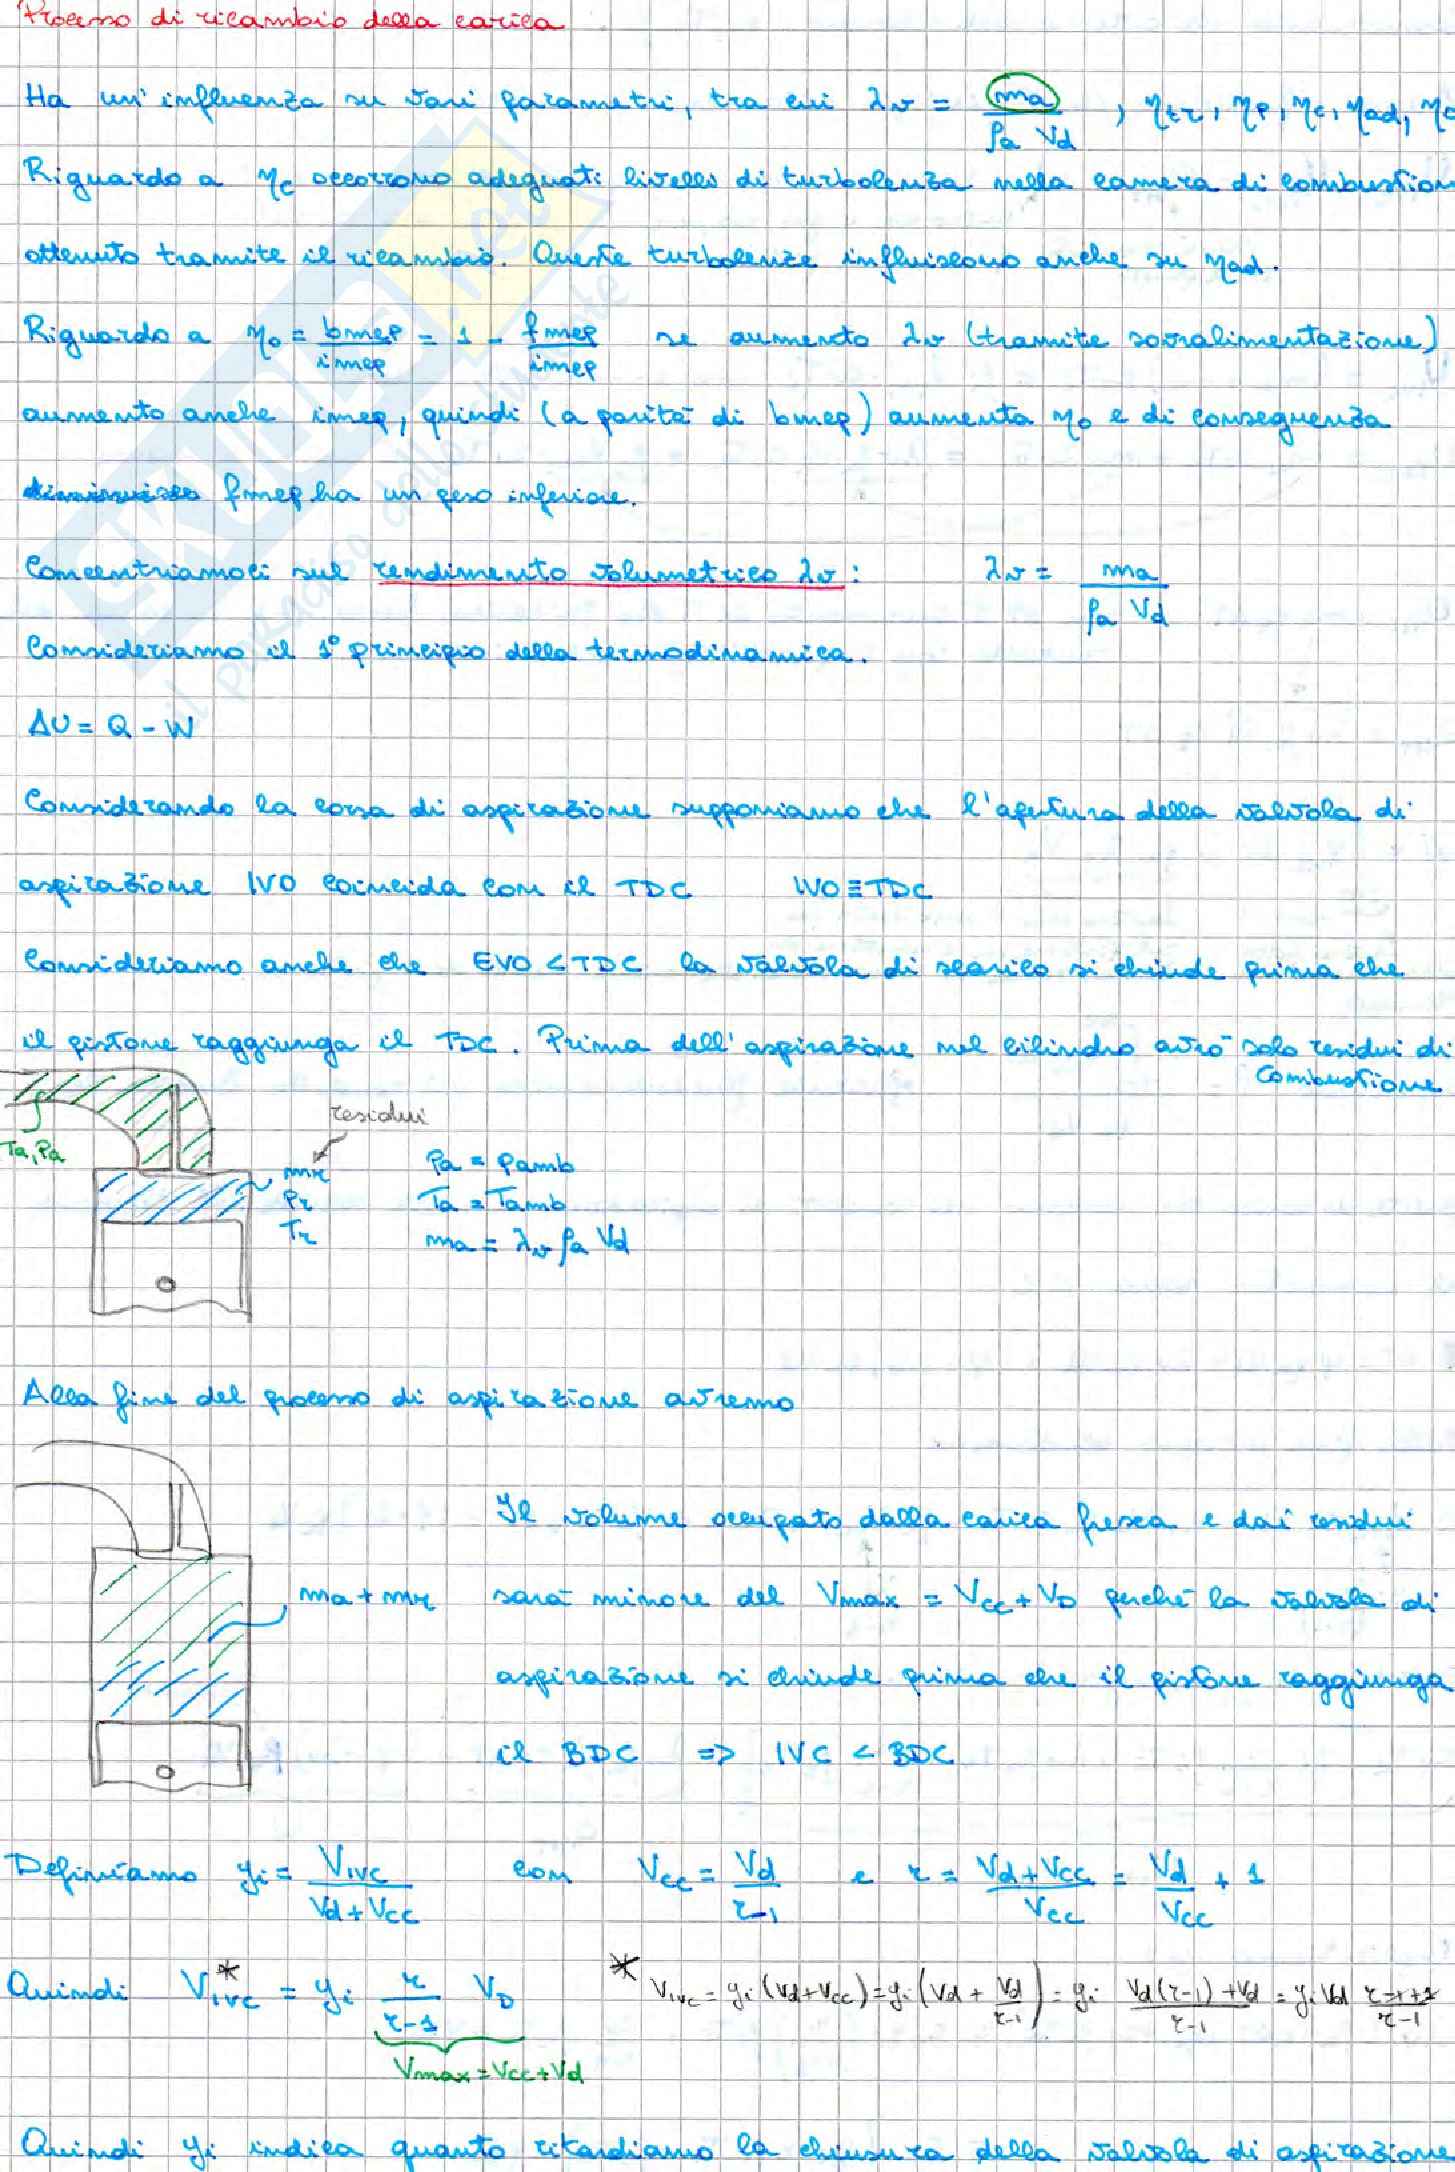 Processo di ricambio della carica
Ha un' influenza su vari parametri, tra cui λv = ma / (ρa Vd) , ηtr, ηp, ηc, ηad, ηo
Riguardo a ηc occorrono adeguati livello di turbolenza nella camera di combustion
ottenuto tramite il ricambio. Queste turbolenze influiscono anche su ηad.
Riguardo a ηo = bmep / imep = 1 - fmep / imep se aumento λv (tramite sovralimentazione)
aumento anche imep, quindi (a parità di bmep) aumenta ηo e di conseguenza
fmep ha un peso inferiore.
Concentriamoci sul rendimento volumetrico λv : λv = ma / (ρa Vd)
Consideriamo il 1° principio della termodinamica.
ΔU = Q - W
Considerando la corsa di aspirazione supponiamo che l'apertura della valvola di
aspirazione IVO coincida con il TDC IVO ≡ TDC
Consideriamo anche che EVO < TDC la valvola di scarico si chiude prima che
il pistone raggiunga il TDC. Prima dell'aspirazione nel cilindro avrò solo residui di
combustione
residui
Ta, Pa
mr
Pr
Tr
Pa = Pamb
Ta = Tamb
ma = λv ρa Vd
Alla fine del processo di aspirazione avremo
Il volume occupato dalla carica fresca e dai residui
ma + mr
sarà minore del Vmax = Vcc + VD perchè la valvola di
aspirazione si chiude prima che il pistone raggiunga
il BDC => IVC < BDC
Definiamo yi = VIVC / (Vd + Vcc) con Vcc = Vd / (r-1) e r = (Vd + Vcc) / Vcc = Vd / Vcc + 1
Quindi VIVC* = yi r / (r-1) VD
* VIVC = yi (Vd + Vcc) = yi (Vd + Vd / (r-1)) = yi (Vd (r-1) + Vd) / (r-1) = yi Vd (r-1+1) / (r-1)
Vmax = Vcc + Vd
Quindi yi indica quanto ritardiamo la chiusura della valvola di aspirazione